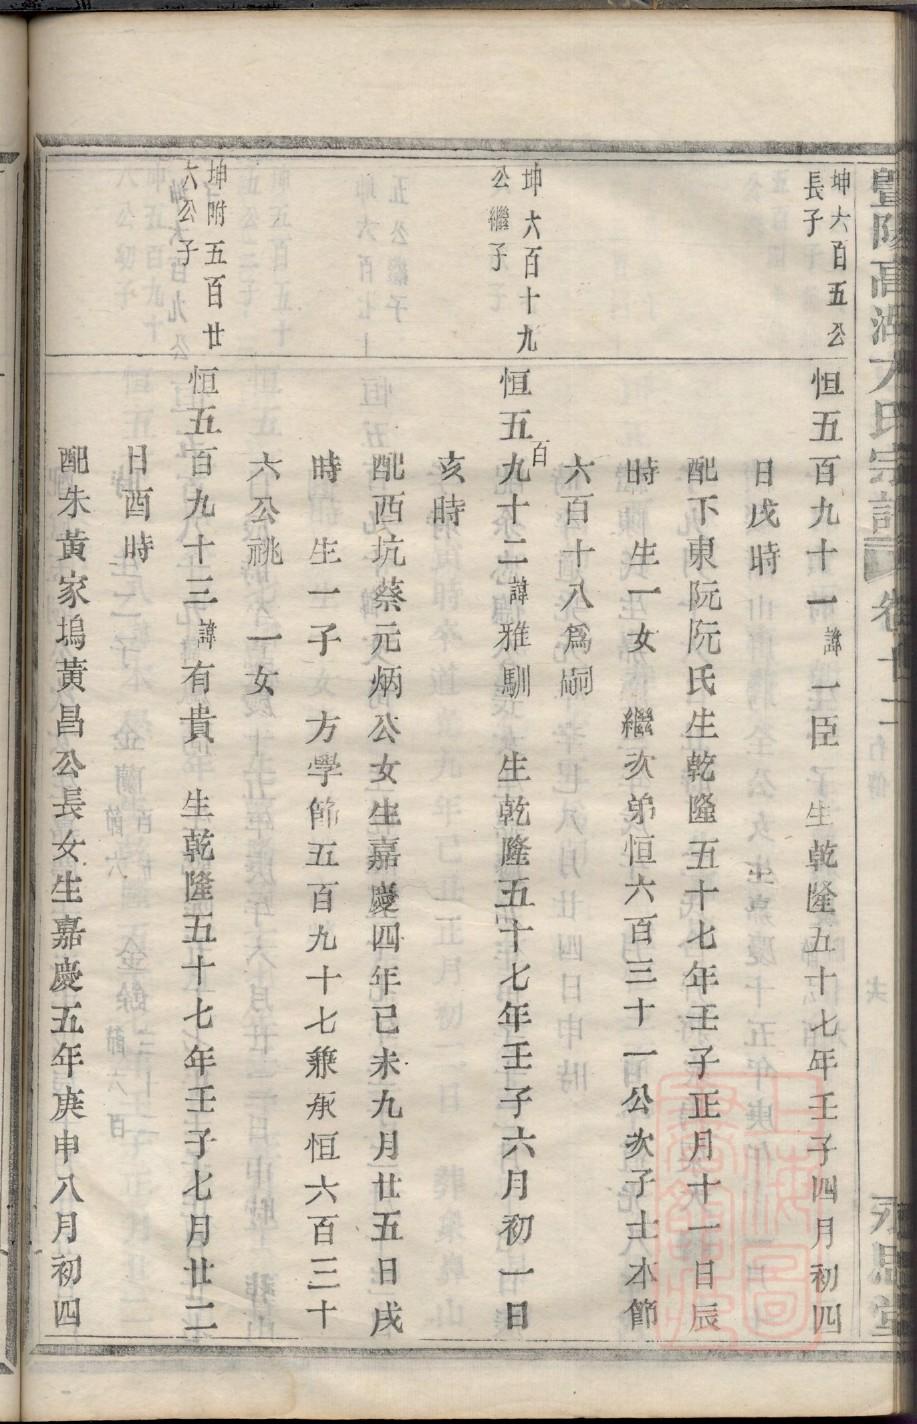 暨陽高湖方氏宗譜 卷廿二 永思堂
坤六百五公
長子
恒五百九十一諱一臣 生乾隆五十七年壬子四月初四
日戌時
配下東阮阮氏生乾隆五十七年壬子正月十一日辰
時 生一女 繼次弟恒六百三十一公次子士本節
六百十八爲嗣
坤六百十九
公繼子
恒五百九十二諱雅馴 生乾隆五十七年壬子六月初一日
亥時
配西坑蔡元炳公女生嘉慶四年己未九月廿五日戌
時 生一子 方學節五百九十七兼承恒六百三十
六公祧 一女
坤附五百廿
六公子
恒五百九十三諱有貴 生乾隆五十七年壬子七月廿二
日酉時
配朱黃家塢黃昌公長女生嘉慶五年庚申八月初四